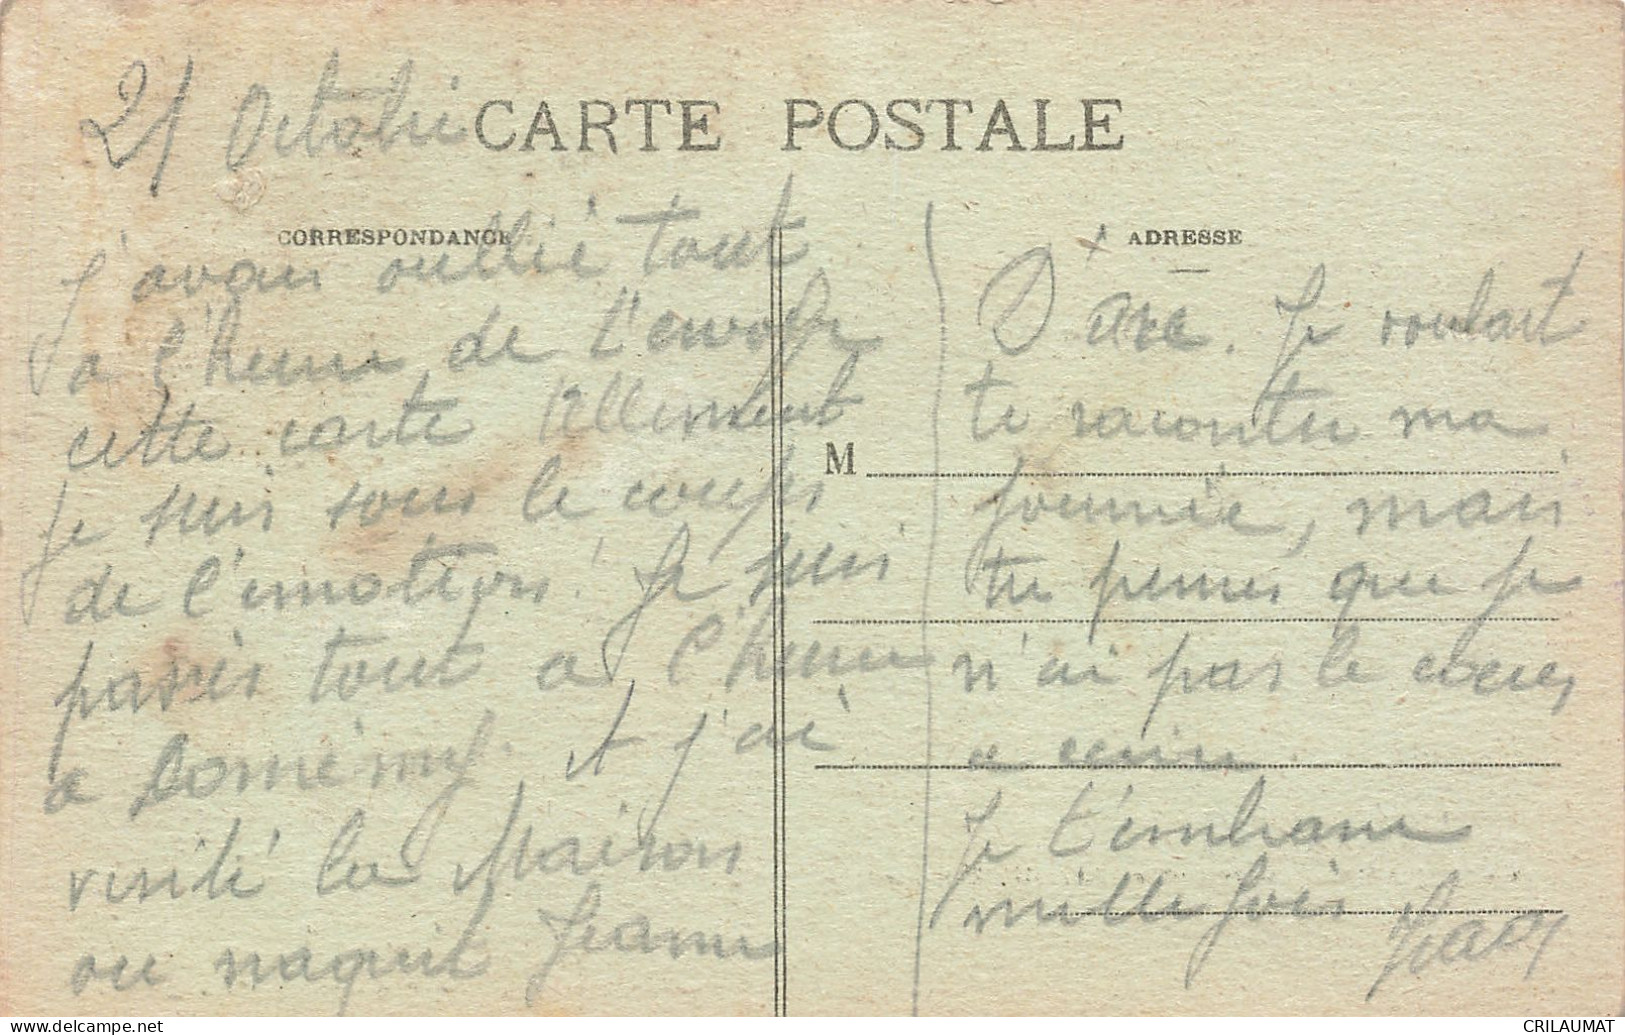 21 Octobre
CARTE POSTALE
CORRESPONDANCE
J'avais oublié tout
a l'heure de t'envoyer
cette carte tellement
Je suis sous le coups
de l'émotion! Je suis
passés tout a l'heure
a Domrémy. et j'ai
visité la Maison
ou naquit Jeanne
ADRESSE
D'arc. Je voulait
M
te raconter ma
journée, mais
tu penses que je
n'ai pas le coeur
a écrire.
Je t'embrasse
mille fois
Jean
www.delcampe.net
CRILAUMAT